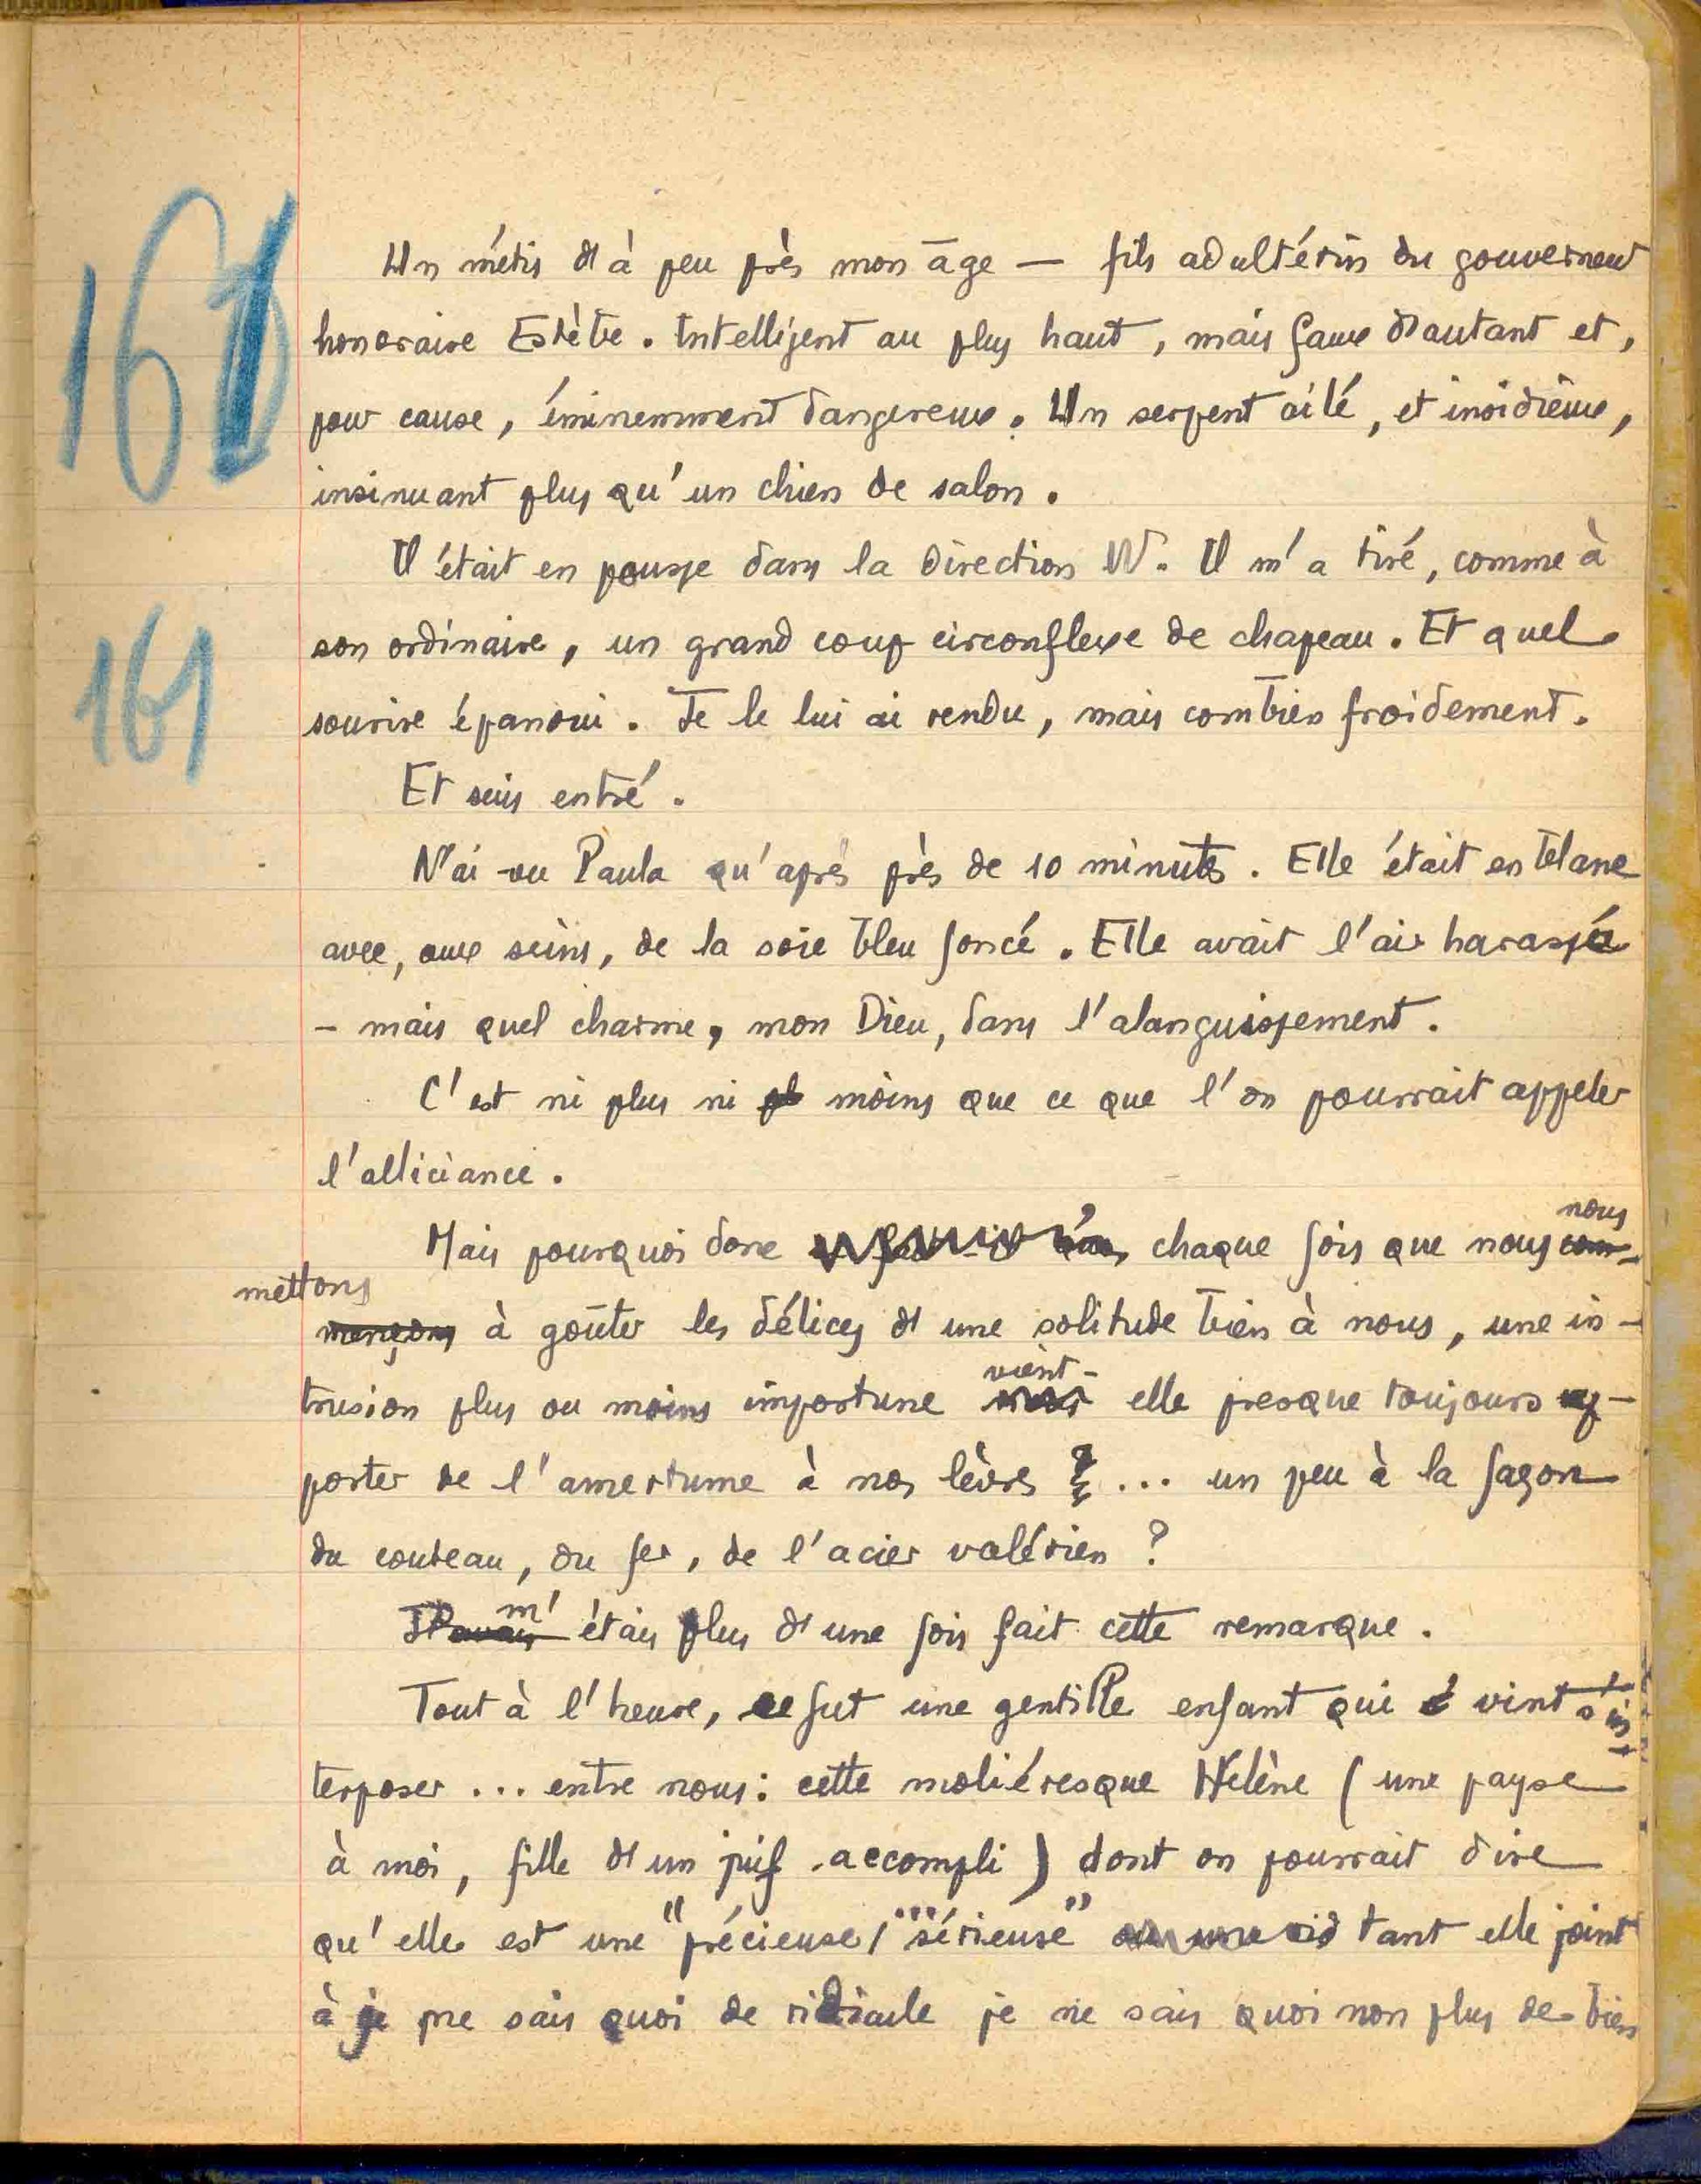 161
161
Un métis d'à peu près mon âge — fils adultérin du gouverneur
honoraire Estèbe. Intelligent au plus haut, mais faux d'autant et,
pour cause, éminemment dangereux. Un serpent ailé, et insidieux,
insinuant plus qu'un chien de salon.
Il était en pousse dans la direction W. Il m'a tiré, comme à
son ordinaire, un grand coup circonflexe de chapeau. Et quel
sourire épanoui. Je le lui ai rendu, mais combien froidement.
Et suis entré.
N'ai vu Paula qu'après près de 10 minutes. Elle était en blanc
avec, aux seins, de la soie bleu foncé. Elle avait l'air harassée
- mais quel charme, mon Dieu, dans l'alanguissement.
C'est ni plus ni pl moins que ce que l'on pourrait appeler
l'alliciance.
nous
Mais pourquoi donc chaque fois que nous com-
mettons
mençons à goûter les délices d'une solitude bien à nous, une in-
vient-
trusion plus ou moins importune elle presque toujours
porter de l'amertume à nos lèvres ... un peu à la façon
du couteau, du fer, de l'acier valérien ?
m'
J'avais étais plus d'une fois fait cette remarque.
Tout à l'heure, ce fut une gentille enfant qui vint s'in-
terposer ... entre nous: cette moliéresque Hélène (une payse
à moi, fille d'un juif accompli) dont on pourrait dire
qu'elle est une "précieuse, ... sérieuse" ou une rid tant elle joint
à je ne sais quoi de ridicule je ne sais quoi non plus de bien